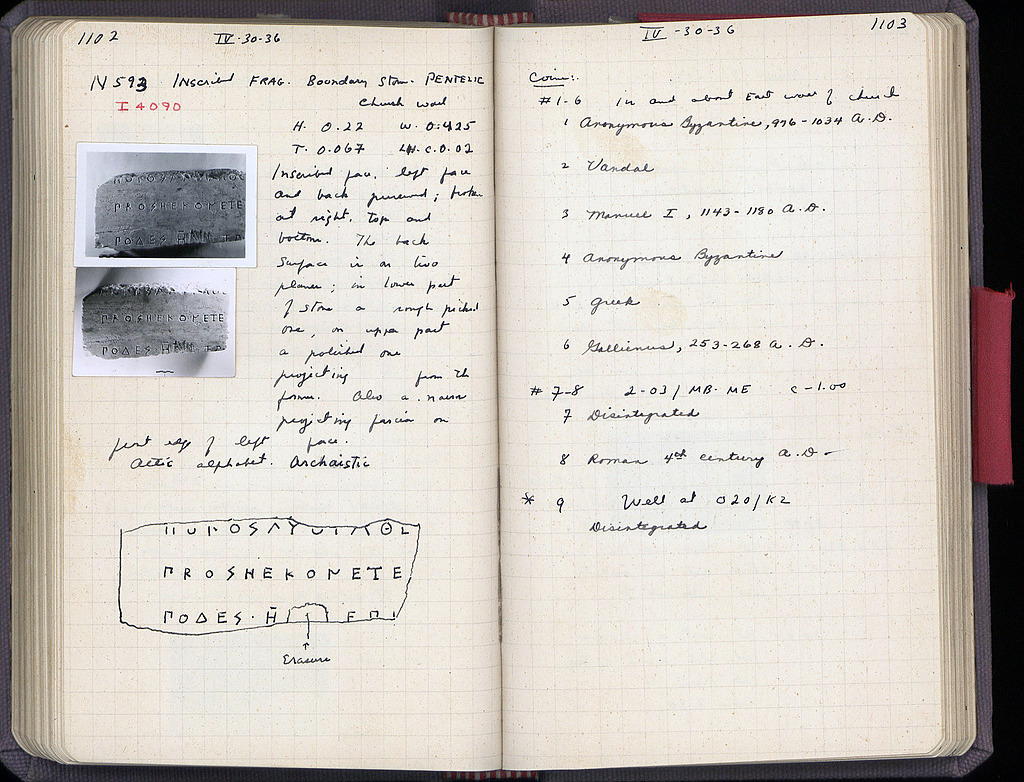 1102
IV-30-36
N 593 Inscribed FRAG. Boundary Stone. PENTELIC
I 4090
Church wall
H. 0.22 W. 0.425
T. 0.067 LH. c. 0.02
Inscribed face, left face
and back preserved; broken
at right, top and
bottom. The back
surface is on two
planes; on lower part
of stone a rough picked
one, on upper part
a polished one
projecting from the
former. Also a narrow
projecting fascia on
front edge of left face.
Attic alphabet. Archaistic
ΠROSHEKOMETE
ΠΟΔES
ΠROSHEKOMETE
ΠΟΔES
ΠROSHEKOMETE
ΠΟΔES · H ΕΠΙ
Erasure
IV-30-36
1103
Coins:
#1-6 In and about East wall of church
1 Anonymous Byzantine, 976-1034 A.D.
2 Vandal
3 Manuel I, 1143-1180 A.D.
4 Anonymous Byzantine
5 Greek
6 Gallienus, 253-268 A.D.
#7-8 2-03/MB-ME c-1.00
7 Disintegrated
8 Roman 4th century A.D-
* 9 Well at O20/KZ
Disintegrated